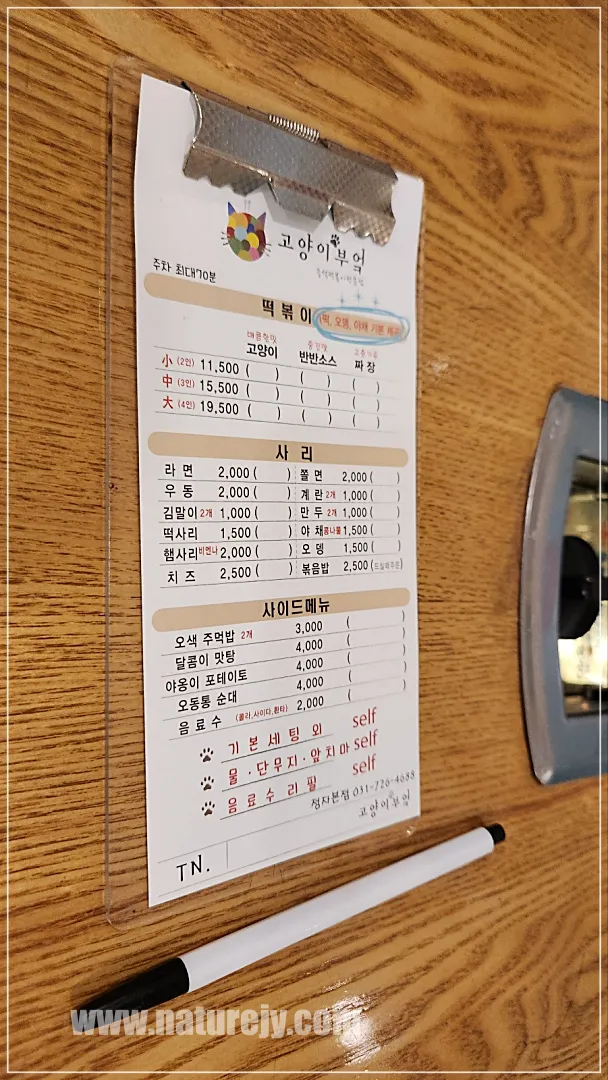 고양이부엌
즉석떡볶이전문점
주차 최대70분
떡볶이 (떡, 오뎅, 야채 기본 제공)
매콤한맛
고양이
중간맛
반반소스
짜장
小 (2인) 11,500 ( ) ( ) ( )
中 (3인) 15,500 ( ) ( ) ( )
大 (4인) 19,500 ( ) ( ) ( )
사 리
라 면 2,000 ( ) 쫄 면 2,000 ( )
우 동 2,000 ( ) 계 란 2개 1,000 ( )
김말이 2개 1,000 ( ) 만 두 2개 1,000 ( )
떡사리 1,500 ( ) 야 채 콩나물 1,500 ( )
햄사리 비엔나 2,000 ( ) 오 뎅 1,500 ( )
치 즈 2,500 ( ) 볶음밥 2,500 (드실때주문)
사이드메뉴
오색 주먹밥 2개 3,000 ( )
달콤이 맛탕 4,000 ( )
야옹이 포테이토 4,000 ( )
오동통 순대 4,000 ( )
음 료 수 (콜라,사이다,환타) 2,000 ( )
기 본 세 팅 외 self
물 · 단무지 · 앞치마 self
음 료 수 리 필 self
정자본점 031-726-4688
고양이부엌
TN.
www.naturejy.com